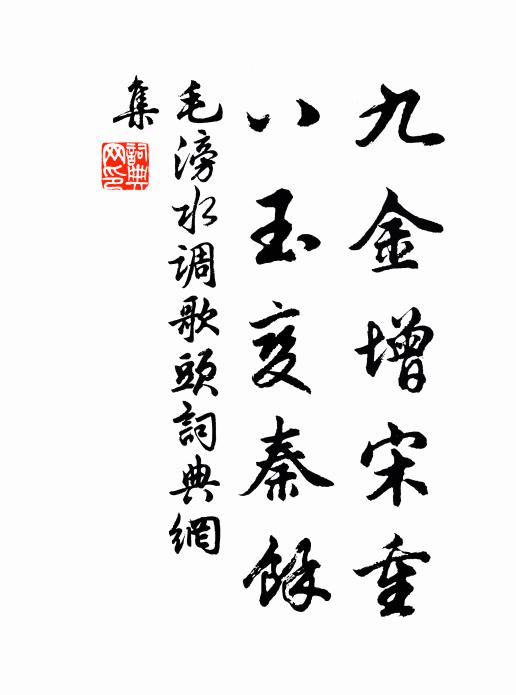 九金增宋重
八玉变秦餘
毛滂水调歌頭詞典網
集
詞典网印